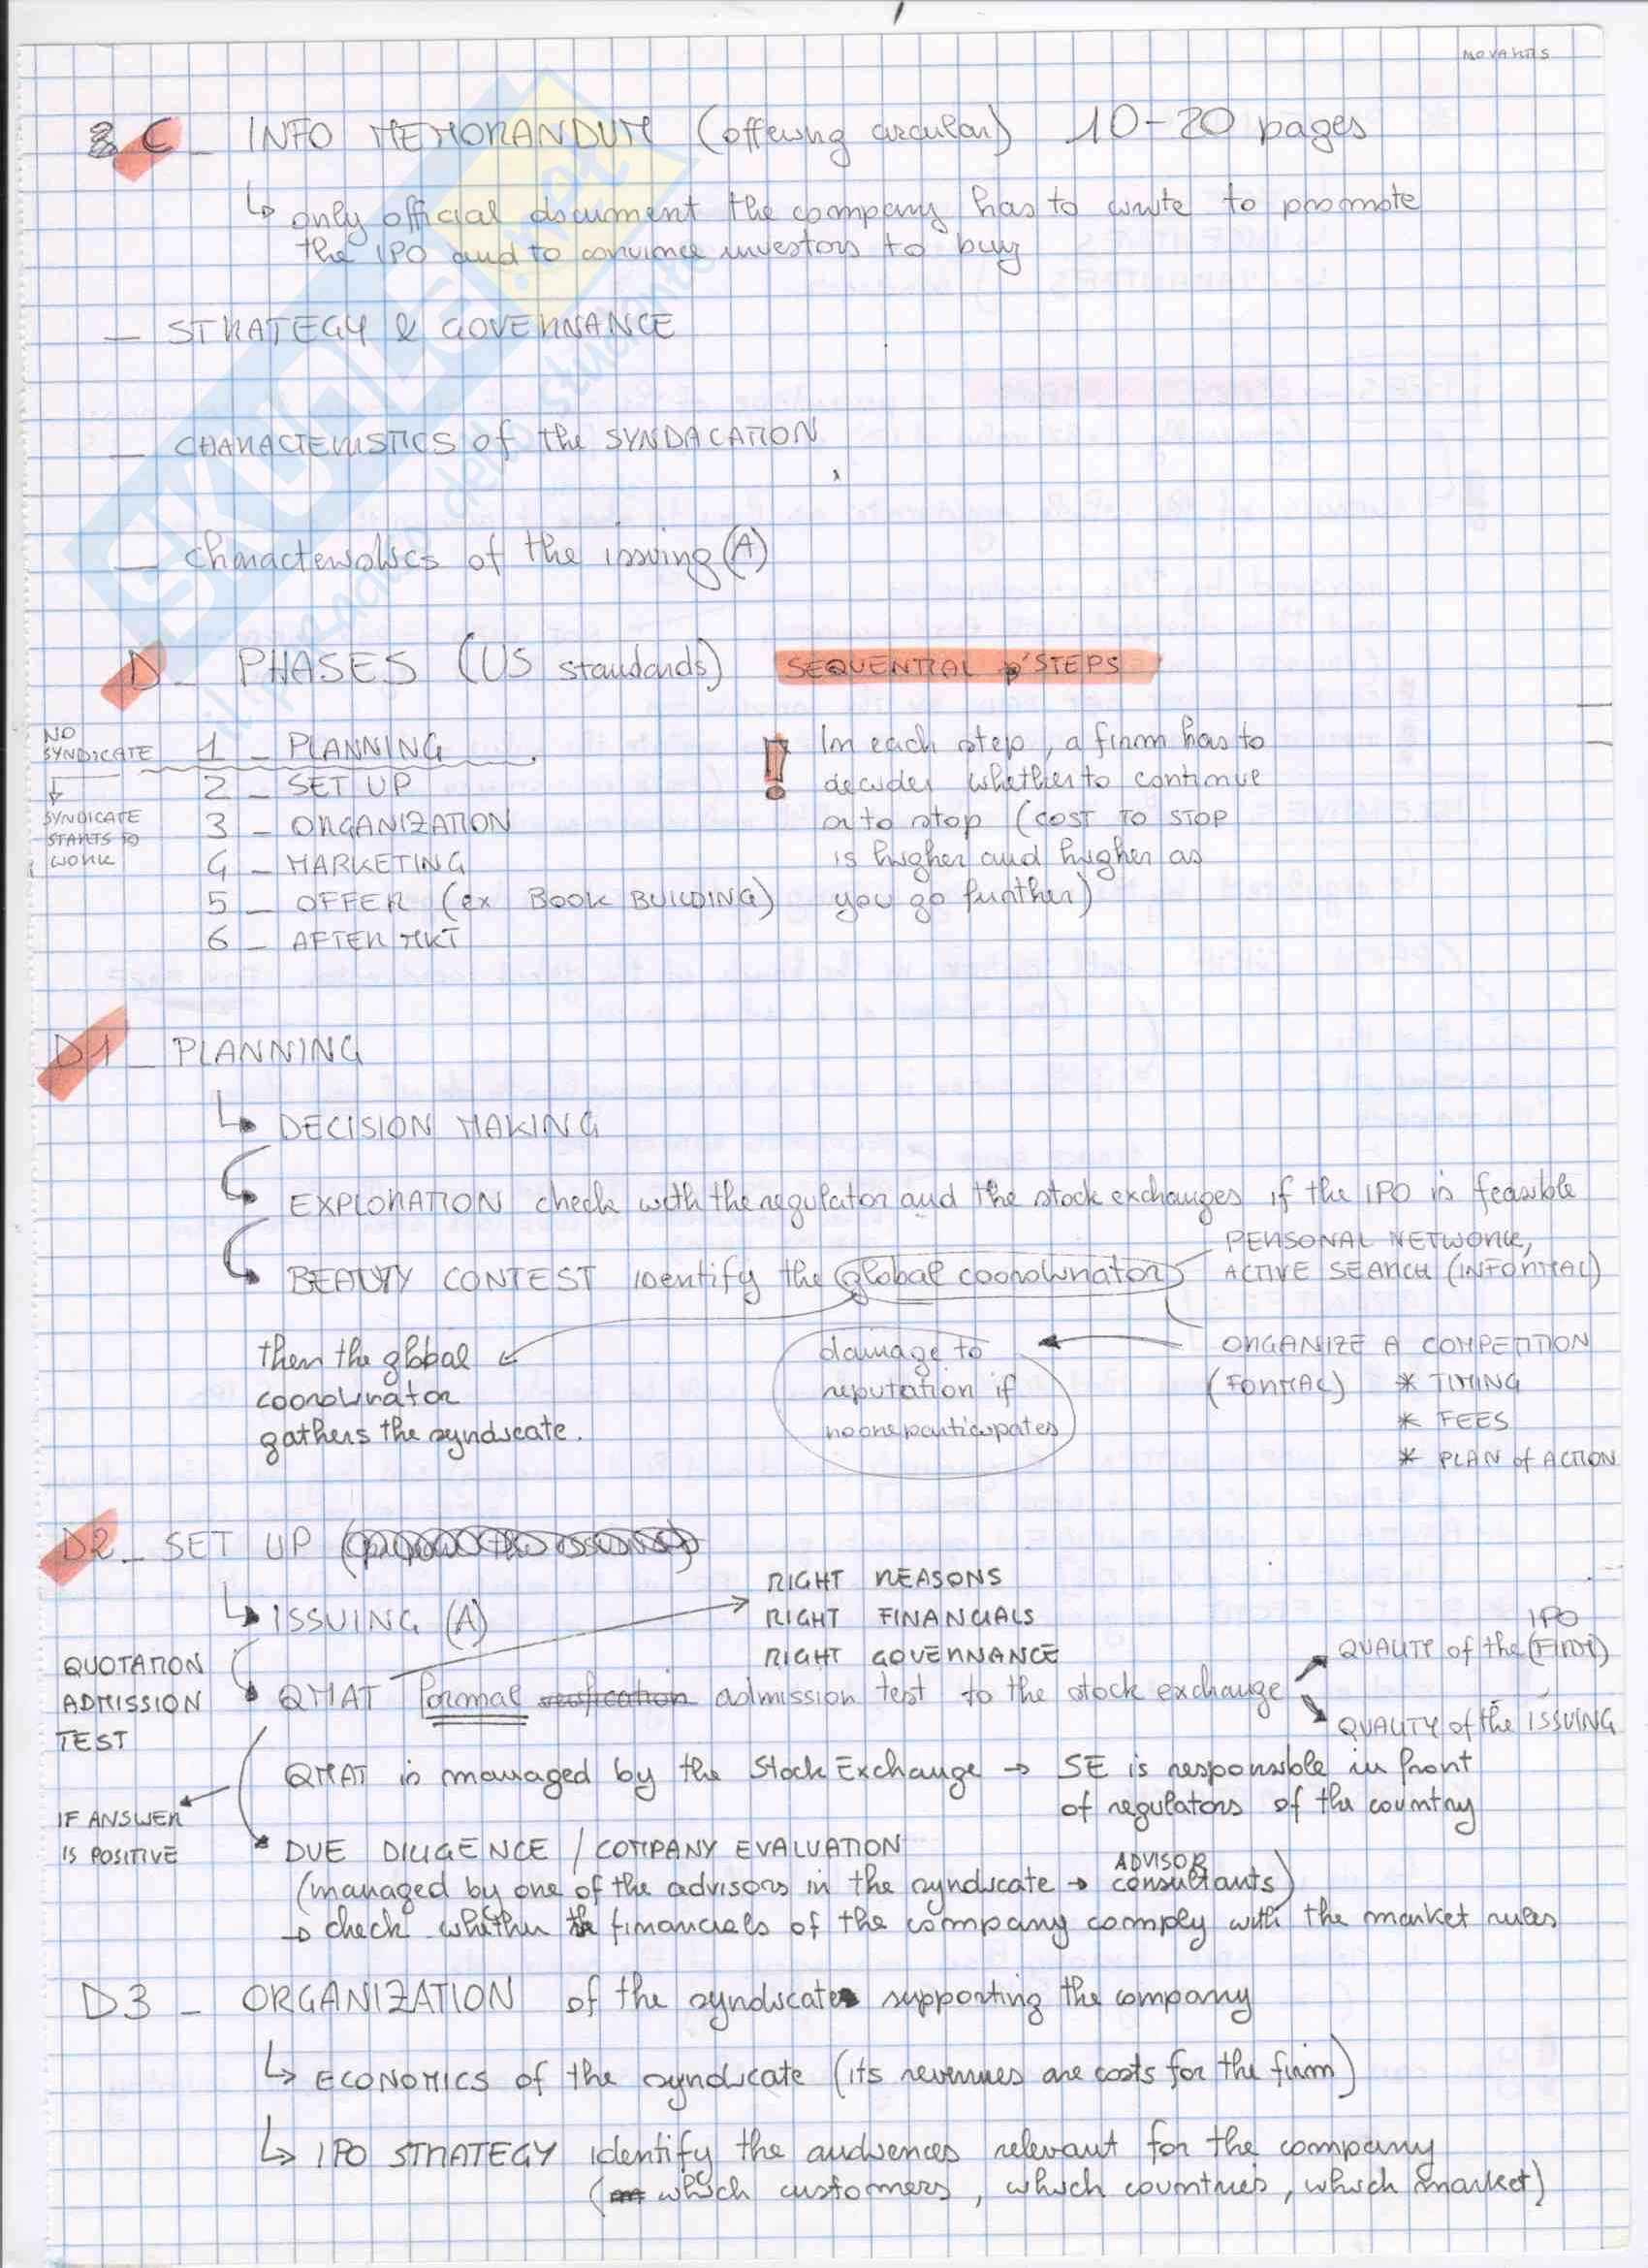 C _ INFO MEMORANDUM (offering circular) 10-20 pages
↳ only official document the company has to write to promote
the IPO and to convince investors to buy
_ STRATEGY & GOVERNANCE
_ CHARACTERISTICS of the SYNDACATION
_ characteristics of the issuing (A)
D _ PHASES (US standards) SEQUENTIAL STEPS
NO
SYNDICATE
↓
SYNDICATE
STARTS TO
WORK
1 _ PLANNING
2 _ SET UP
3 _ ORGANIZATION
4 _ MARKETING
5 _ OFFER (ex BOOK BUILDING)
6 _ AFTER MKT
! In each step, a firm has to
decides whether to continue
or to stop (COST TO STOP
is higher and higher as
you go further)
D1 _ PLANNING
↳ DECISION MAKING
EXPLORATION check with the regulator and the stock exchanges if the IPO is feasible
BEAUTY CONTEST identify the global coordinator
PERSONAL NETWORK,
ACTIVE SEARCH (INFORMAL)
then the global
coordinator
gathers the syndicate.
damage to
reputation if
no one participates
ORGANIZE A COMPETITION
(FORMAL) * TIMING
* FEES
* PLAN of ACTION
D2 _ SET UP
↳ ISSUING (A)
RIGHT REASONS
RIGHT FINANCIALS
RIGHT GOVERNANCE
QUOTATION
ADMISSION
TEST
QMAT formal admission test to the stock exchange
IPO
QUALITY of the (FIRM)
QUALITY of the ISSUING
QMAT is managed by the Stock Exchange → SE is responsible in front
of regulators of the country
IF ANSWER
IS POSITIVE
DUE DILIGENCE / COMPANY EVALUATION
(managed by one of the advisors in the syndicate → ADVISOR consultants)
→ check whether the financials of the company comply with the market rules
D3 _ ORGANIZATION of the syndicate supporting the company
↳ ECONOMICS of the syndicate (its revenues are costs for the firm)
↳ IPO STRATEGY identify the audiences relevant for the company
(which customers, which countries, which market)